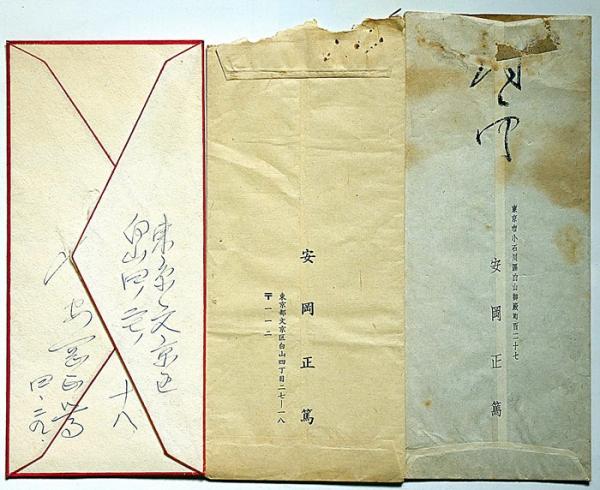 東京市小石川區白山御殿町百二十七
安岡正篤
安岡正篤
東京都文京区白山四丁目二七ー一八
〒一一二
東京文京区
白山四
十八
安岡正篤